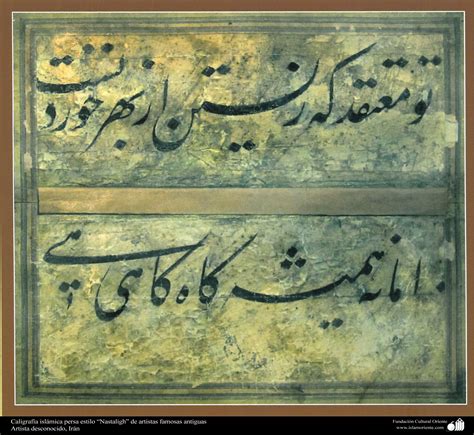 تو معتقد که زیستن از بهر خوردنست
اما نه همیشه گاه گاهی
Caligrafía islámica persa estilo “Nastaligh” de artistas famosas antiguas
Artista desconocido, Irán
Fundación Cultural Oriente
www.islamoriente.com